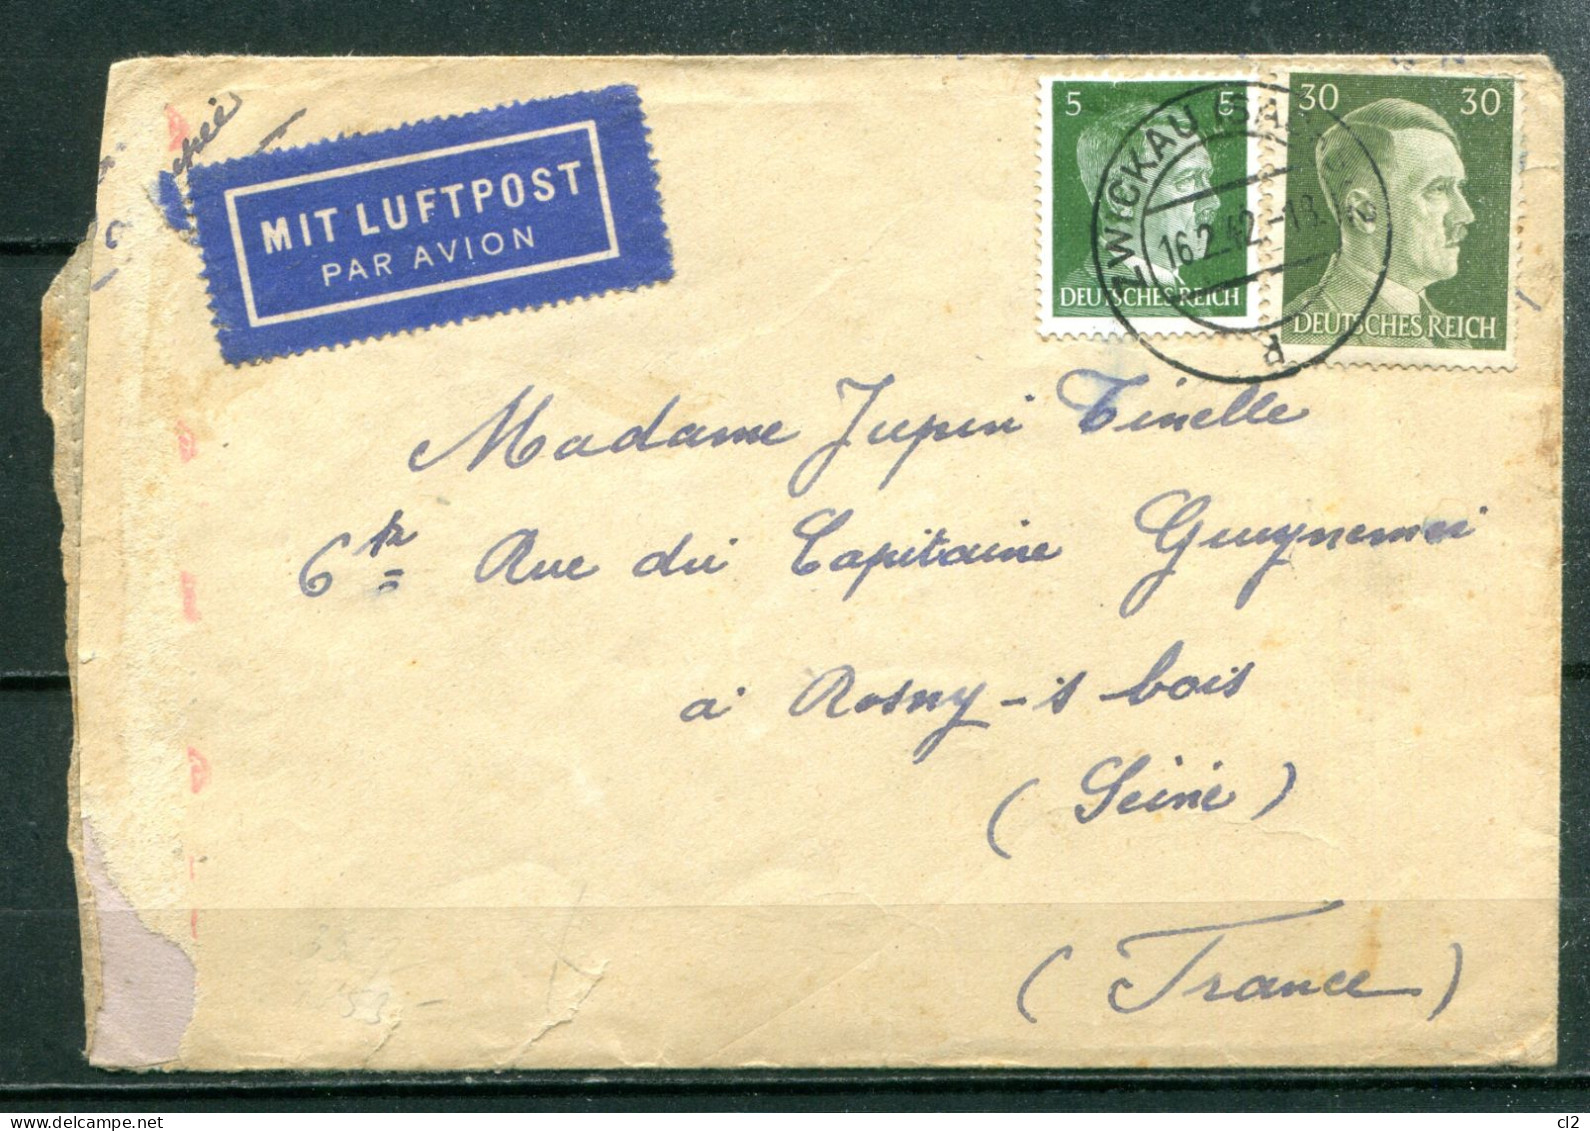 MIT LUFTPOST
PAR AVION
5 5
DEUTSCHES REICH
30 30
DEUTSCHES REICH
ZWICKAU (SACHS)
16.2.42.-18
Madame Jupin Tinelle
6 Rue du Capitaine Guynemer
à Rosny-s bois
(Seine)
(France)
cl2